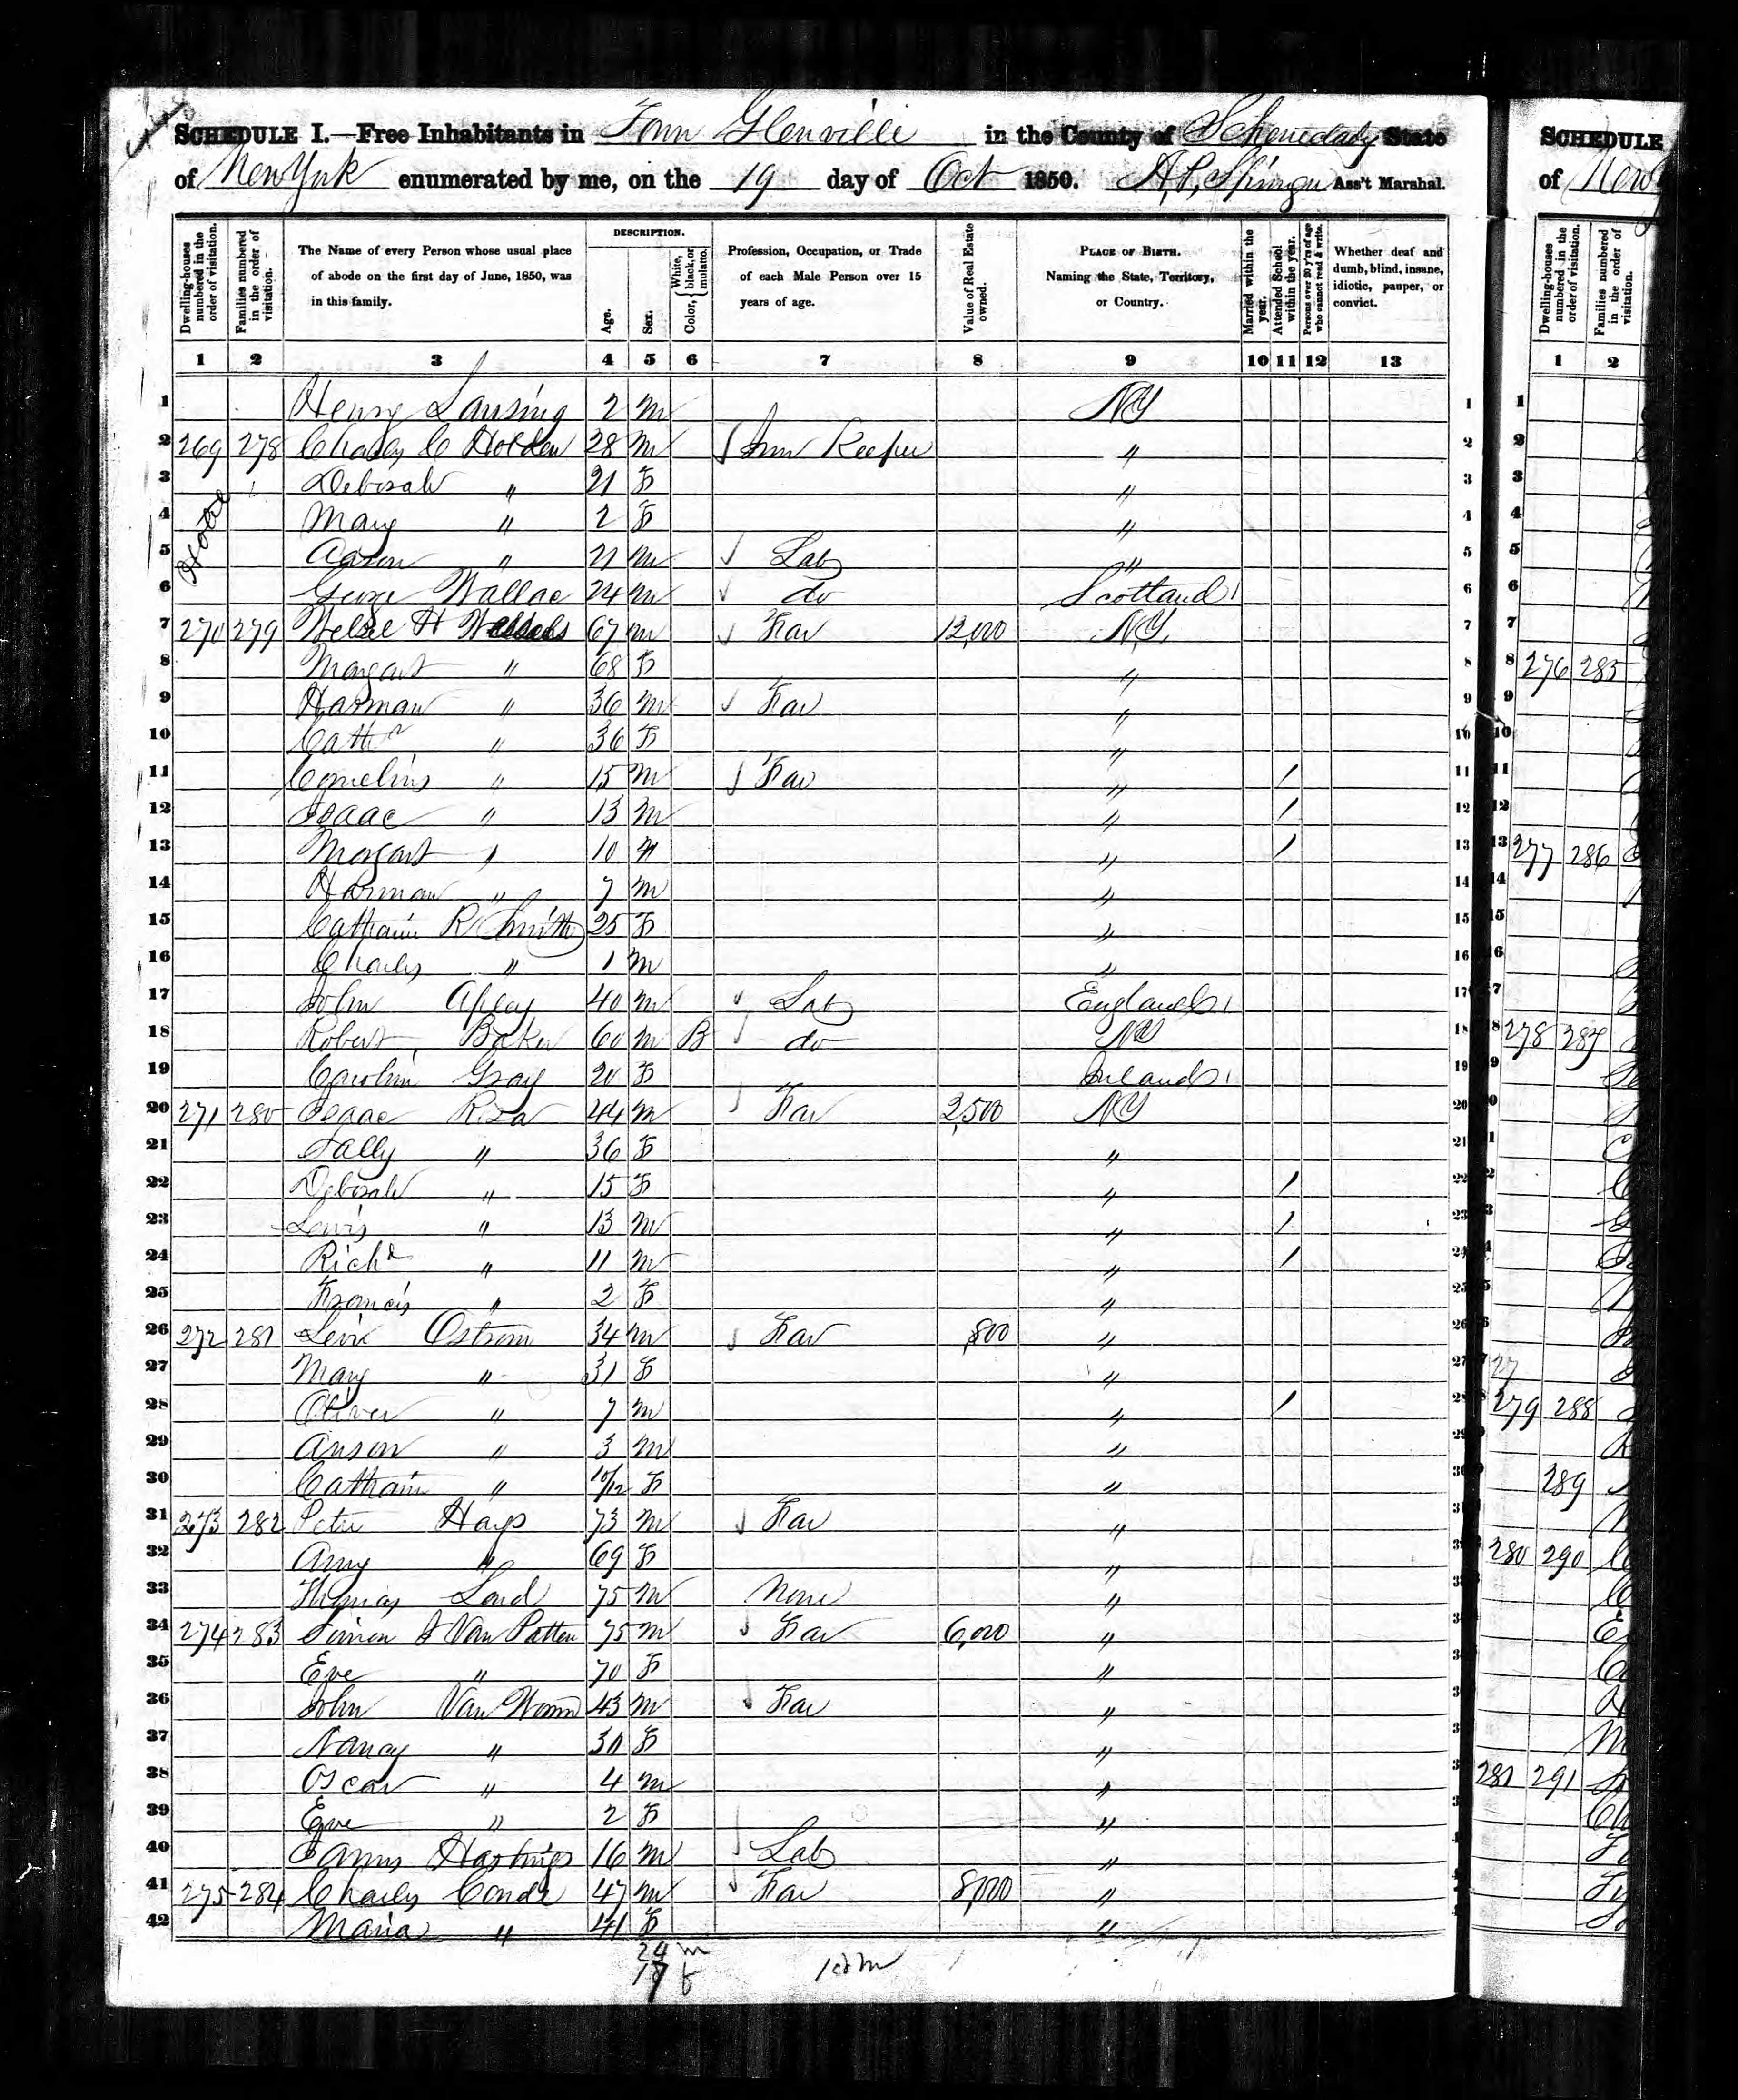 SCHEDULE I.—Free Inhabitants in Town Glenville in the County of Schenectady State
of New York enumerated by me, on the 19 day of Oct 1850. Ass't Marshal.
Dwelling-houses numbered in the order of visitation.
Families numbered in the order of visitation.
The Name of every Person whose usual place of abode on the first day of June, 1850, was in this family.
DESCRIPTION.
Age.
Sex.
Color, White, black, or mulatto.
Profession, Occupation, or Trade of each Male Person over 15 years of age.
Value of Real Estate owned.
PLACE OF BIRTH. Naming the State, Territory, or Country.
Married within the year.
Attended School within the year.
Persons over 20 y'rs of age who cannot read & write.
Whether deaf and dumb, blind, insane, idiotic, pauper, or convict.
1 2 3 4 5 6 7 8 9 10 11 12 13
1 Henry Lansing 2 m NY 1
2 269 278 Charles C Holden 28 m Inn Keeper " 2
3 Deborah " 21 F " 3
4 Mary " 2 F " 4
5 Aaron " 21 m Lab " 5
6 George Wallace 24 m do Scotland 6
7 270 279 H 67 m Far 12,000 NY 7
8 Margart " 68 F " 8
9 Harman " 36 m Far " 9
10 Cathn " 36 F " 10
11 Cornelius " 15 m Far " / 11
12 Isaac " 13 m " / 12
13 Margart " 10 F " / 13
14 Harman " 7 m " 14
15 Catharine R Smith 25 F " 15
16 Charles " 1 m " 16
17 John 40 m Lab England 17
18 Robert Baker 60 m B do NY 18
19 Carolin Gray 20 F Ireland 19
20 271 280 Isaac 44 m Far 2,500 NY 20
21 Sally " 36 F " 21
22 Deborah " 15 F " / 22
23 Lewis " 13 m " / 23
24 Richd " 11 m " / 24
25 Francis " 2 F " 25
26 272 281 Levi Ostrom 34 m Far 800 " 26
27 Mary " 31 F " 27
28 Oliver " 7 m " / 28
29 Anson " 3 m " 29
30 Catharin " 10/12 F " 30
31 273 282 Peter Hays 73 m Far "
32 Amy " 69 F "
33 Thomas Lord 75 m None "
34 274 283 Simon Van Patten 75 m Far 6,000 "
35 Eve " 70 F "
36 John Van 43 m Far "
37 Nancy " 30 F "
38 Oscar " 4 m "
39 Eve " 2 F "
40 James Hastings 16 m Lab "
41 275 284 Charles Conde 47 m Far 8,000 "
42 Maria " 41 F "
24 m
17 f
SCHEDULE
of New
Dwelling-houses numbered in the order of visitation.
Families numbered in the order of visitation.
1 2
276 285
277 286
278 287
279 288
289
280 290
281 291